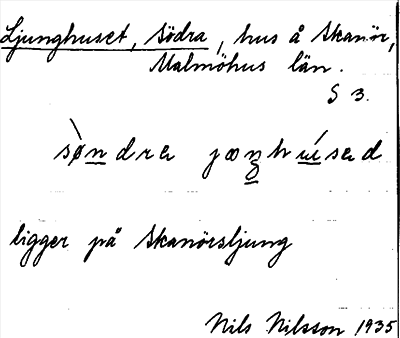 Ljunghuset, Södra, hus å Skanör,
Malmöhus län.
S 3.
ligger på Skanörsljung
Nils Nilsson 1935